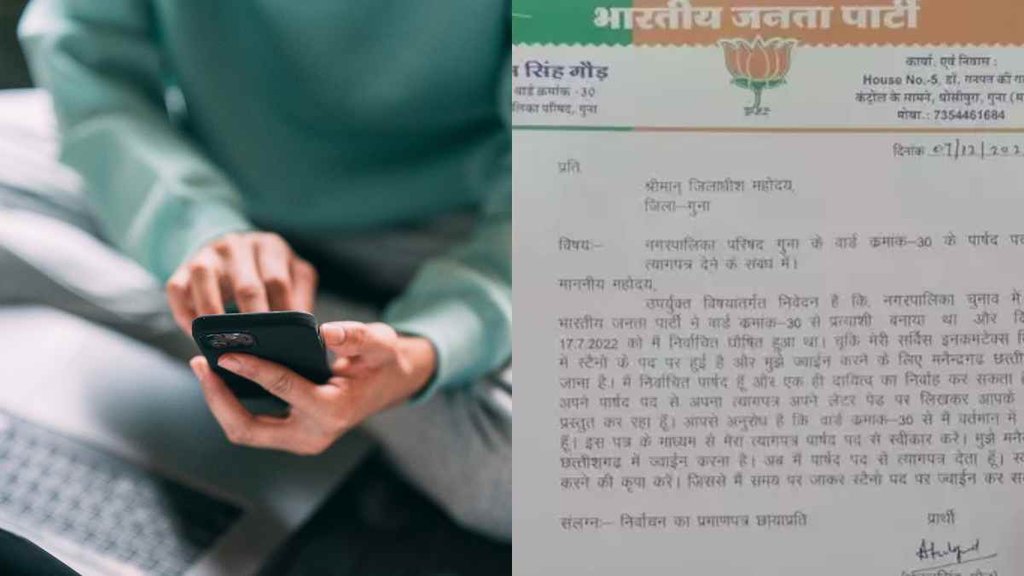 भारतीय जनता पार्टी
सिंह गौड़
वार्ड क्रमांक -30
परिषद, गुना
कार्या. एवं निवास :
House No.-5, डॉ. गनपत की
कंट्रोल के सामने, घोसीपुरा, गुना
मोबा.: 7354461684
दिनांक 07/12/202
प्रति
श्रीमान् जिलाधीश महोदय,
जिला-गुना
विषय:- नगरपालिका परिषद गुना के वार्ड क्रमांक-30 के पार्षद
त्यागपत्र देने के संबंध में।
माननीय महोदय,
उपर्युक्त विषयांतर्गत निवेदन है कि, नगरपालिका चुनाव में
भारतीय जनता पार्टी ने वार्ड क्रमांक-30 से प्रत्याशी बनाया था और
17.7.2022 को मैं निर्वाचित घोषित हुआ था। चूंकि मेरी सर्विस इनकमटेक्स
में स्टेनो के पद पर हुई है और मुझे ज्वाईन करने के लिए मनेन्द्रगढ़
जाना है। मैं निर्वाचित पार्षद हूँ और एक ही दायित्व का निर्वाह कर सकता
अपने पार्षद पद से अपना त्यागपत्र अपने लेटर पेड पर लिखकर आपके
प्रस्तुत कर रहा हूँ। आपसे अनुरोध है कि वार्ड क्रमांक-30 से मैं वर्तमान में
हूँ। इस पत्र के माध्यम से मेरा त्यागपत्र पार्षद पद से स्वीकार करें। मुझे
छत्तीशगढ़ में ज्वाईन करना है। अब मैं पार्षद पद से त्यागपत्र देता हूँ।
करने की कृपा करें। जिससे मैं समय पर जाकर स्टेनो पद पर ज्वाईन कर
संलग्नः- निर्वाचन का प्रमाणपत्र छायाप्रति
प्रार्थी